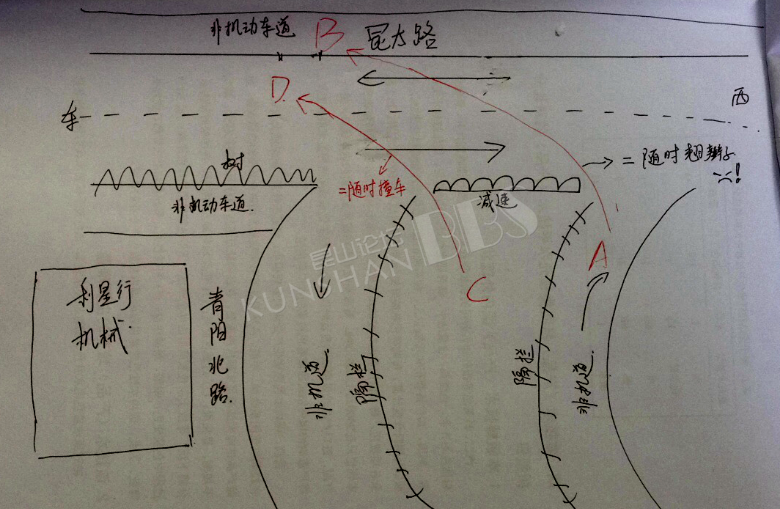 非机动车道
B
昆太路
D.
西
东
树
=随时翘辫子
!
=随时撞车
减速
非机动车道.
昆山论坛
KUNSHAN BBS
A
C
利星行
机械
青阳北路.
非机道
隔栏
隔栏
非机道